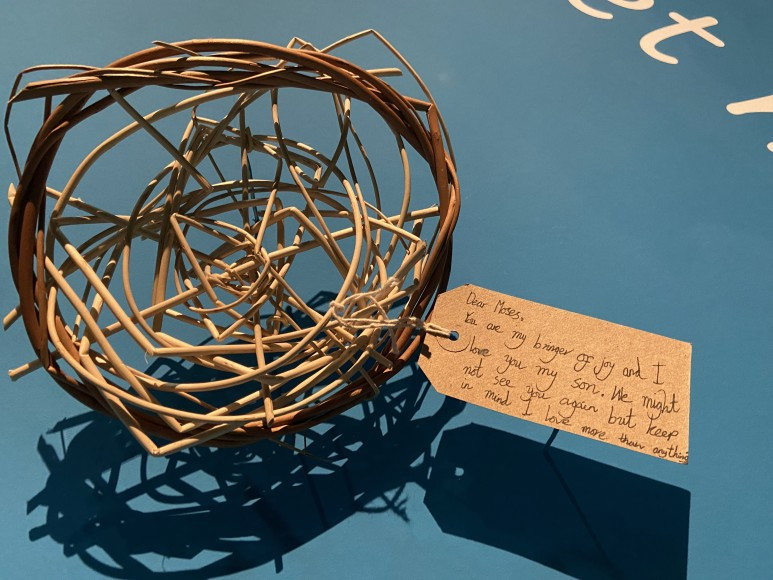 et
Dear Moses,
You are my bringer of joy and I
love you my son. We might
not see you again but keep
in mind I love more than anything